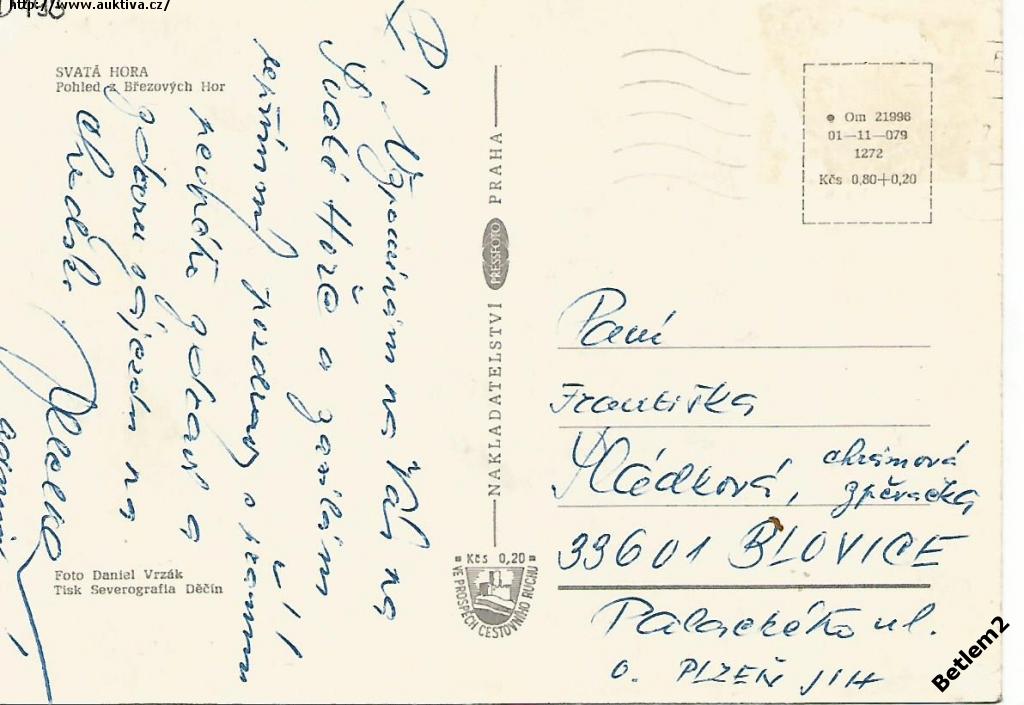 http://www.auktiva.cz/
SVATÁ HORA
Pohled z Březových Hor
P.
Vzpomínám na Vás na
Svaté Hoře a zasílám
upřímný pozdrav s přáním
pevného zdraví a
dobrou
Foto Daniel Vrzák
Tisk Severografia Děčín
NAKLADATELSTVÍ PRESSFOTO PRAHA
Kčs 0,20
VE PROSPĚCH CESTOVNÍHO RUCHU
Om 21996
01—11—079
1272
Kčs 0,80+0,20
Paní
Františka
Mládková, chrámová
zpěvačka
33601 BLOVICE
Palackého ul.
o. PLZEŇ JIH
Betlem2